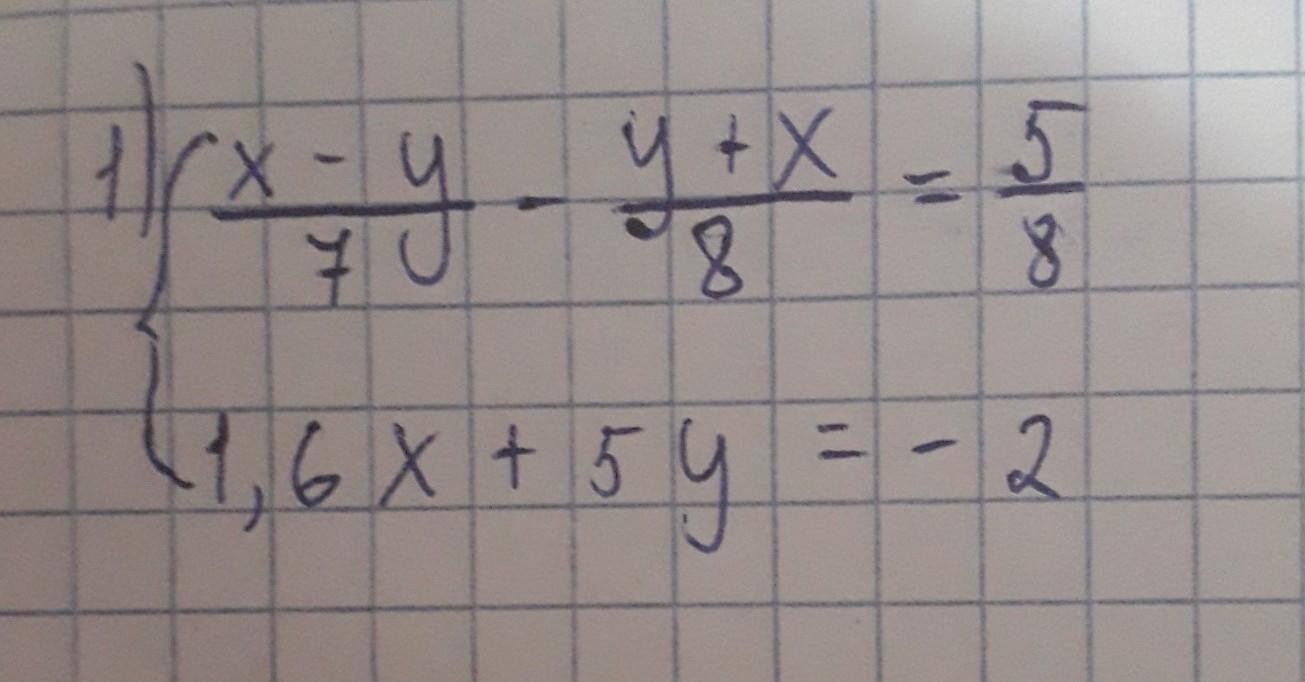 1) { (x - y)/7 - (y + x)/8 = 5/8
1,6x + 5y = -2